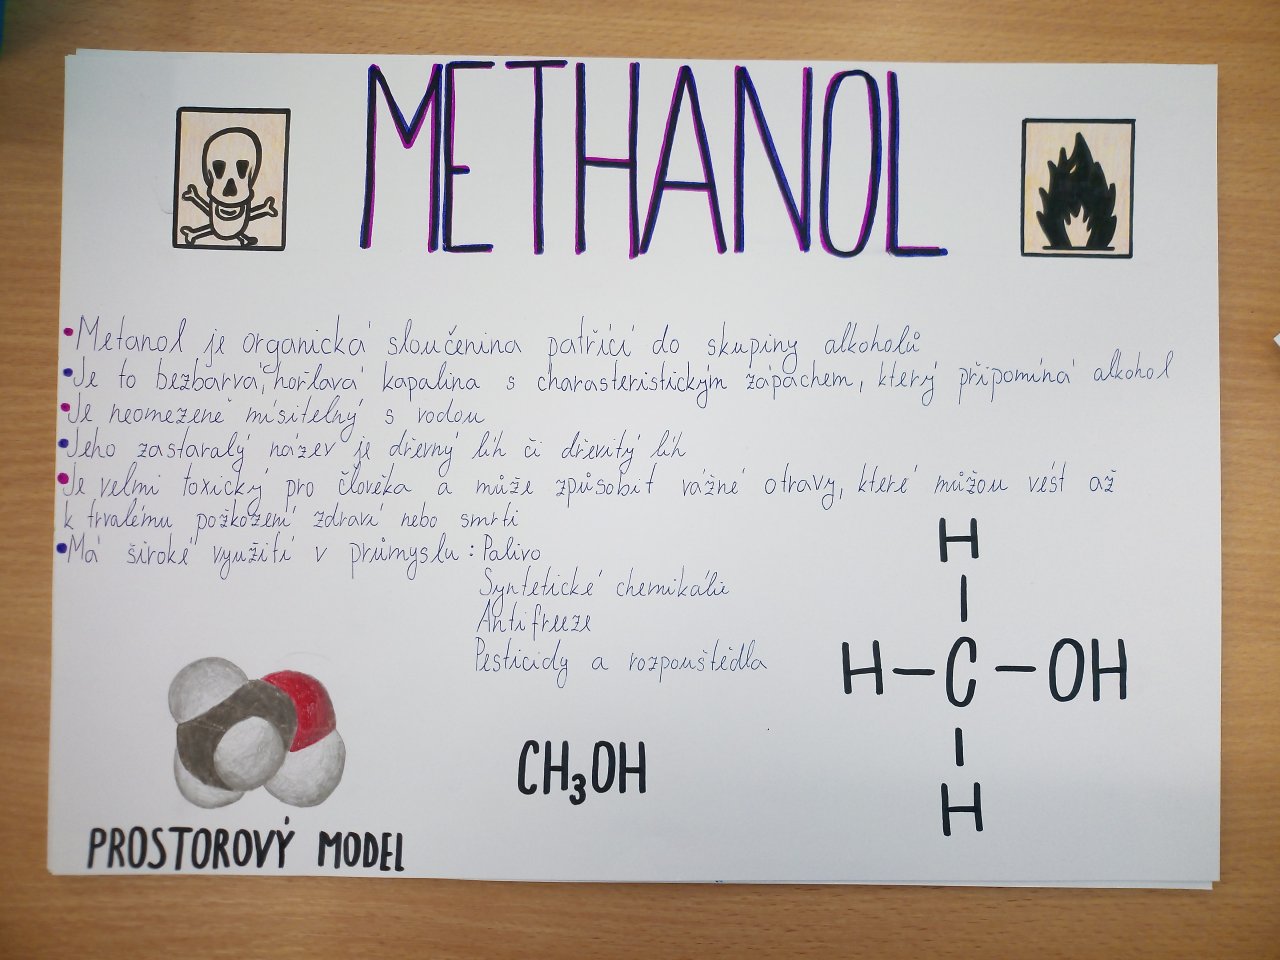 METHANOL
• Metanol je organická sloučenina patřící do skupiny alkoholů
• Je to bezbarvá, hořlavá kapalina s charasteristickým zápachem, který připomíná alkohol
• Je neomezeně mísitelný s vodou
• Jeho zastaralý název je dřevný líh či dřevitý líh
• Je velmi toxický pro člověka a může způsobit vážné otravy, které můžou vést až
k trvalému požkození zdraví nebo smrti
• Má široké využití v průmyslu: Palivo
Syntetické chemikálie
Antifreeze
Pesticidy a rozpouštědla
H
H-C-OH
H
CH₃OH
PROSTOROVÝ MODEL